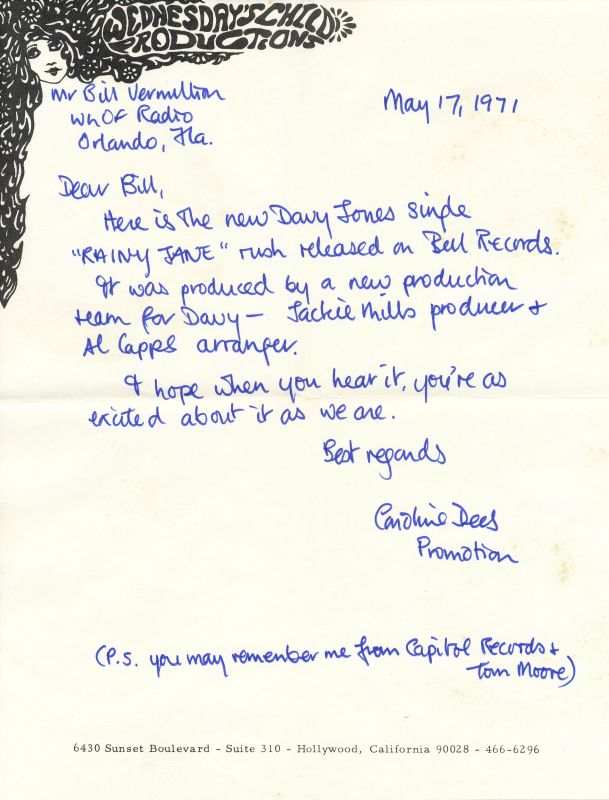 WEDNESDAY'S CHILD
PRODUCTIONS
Mr Bill Vermillion
WHOF Radio
Orlando, Fla.
May 17, 1971
Dear Bill,
Here is the new Davy Jones single
"RAINY JANE" rush released on Bell Records.
It was produced by a new production
team for Davy — Jackie Mills producer &
Al Capps arranger.
I hope when you hear it, you're as
excited about it as we are.
Best regards
Caroline Dees
Promotion
(P.S. you may remember me from Capitol Records &
Tom Moore)
6430 Sunset Boulevard - Suite 310 - Hollywood, California 90028 - 466-6296